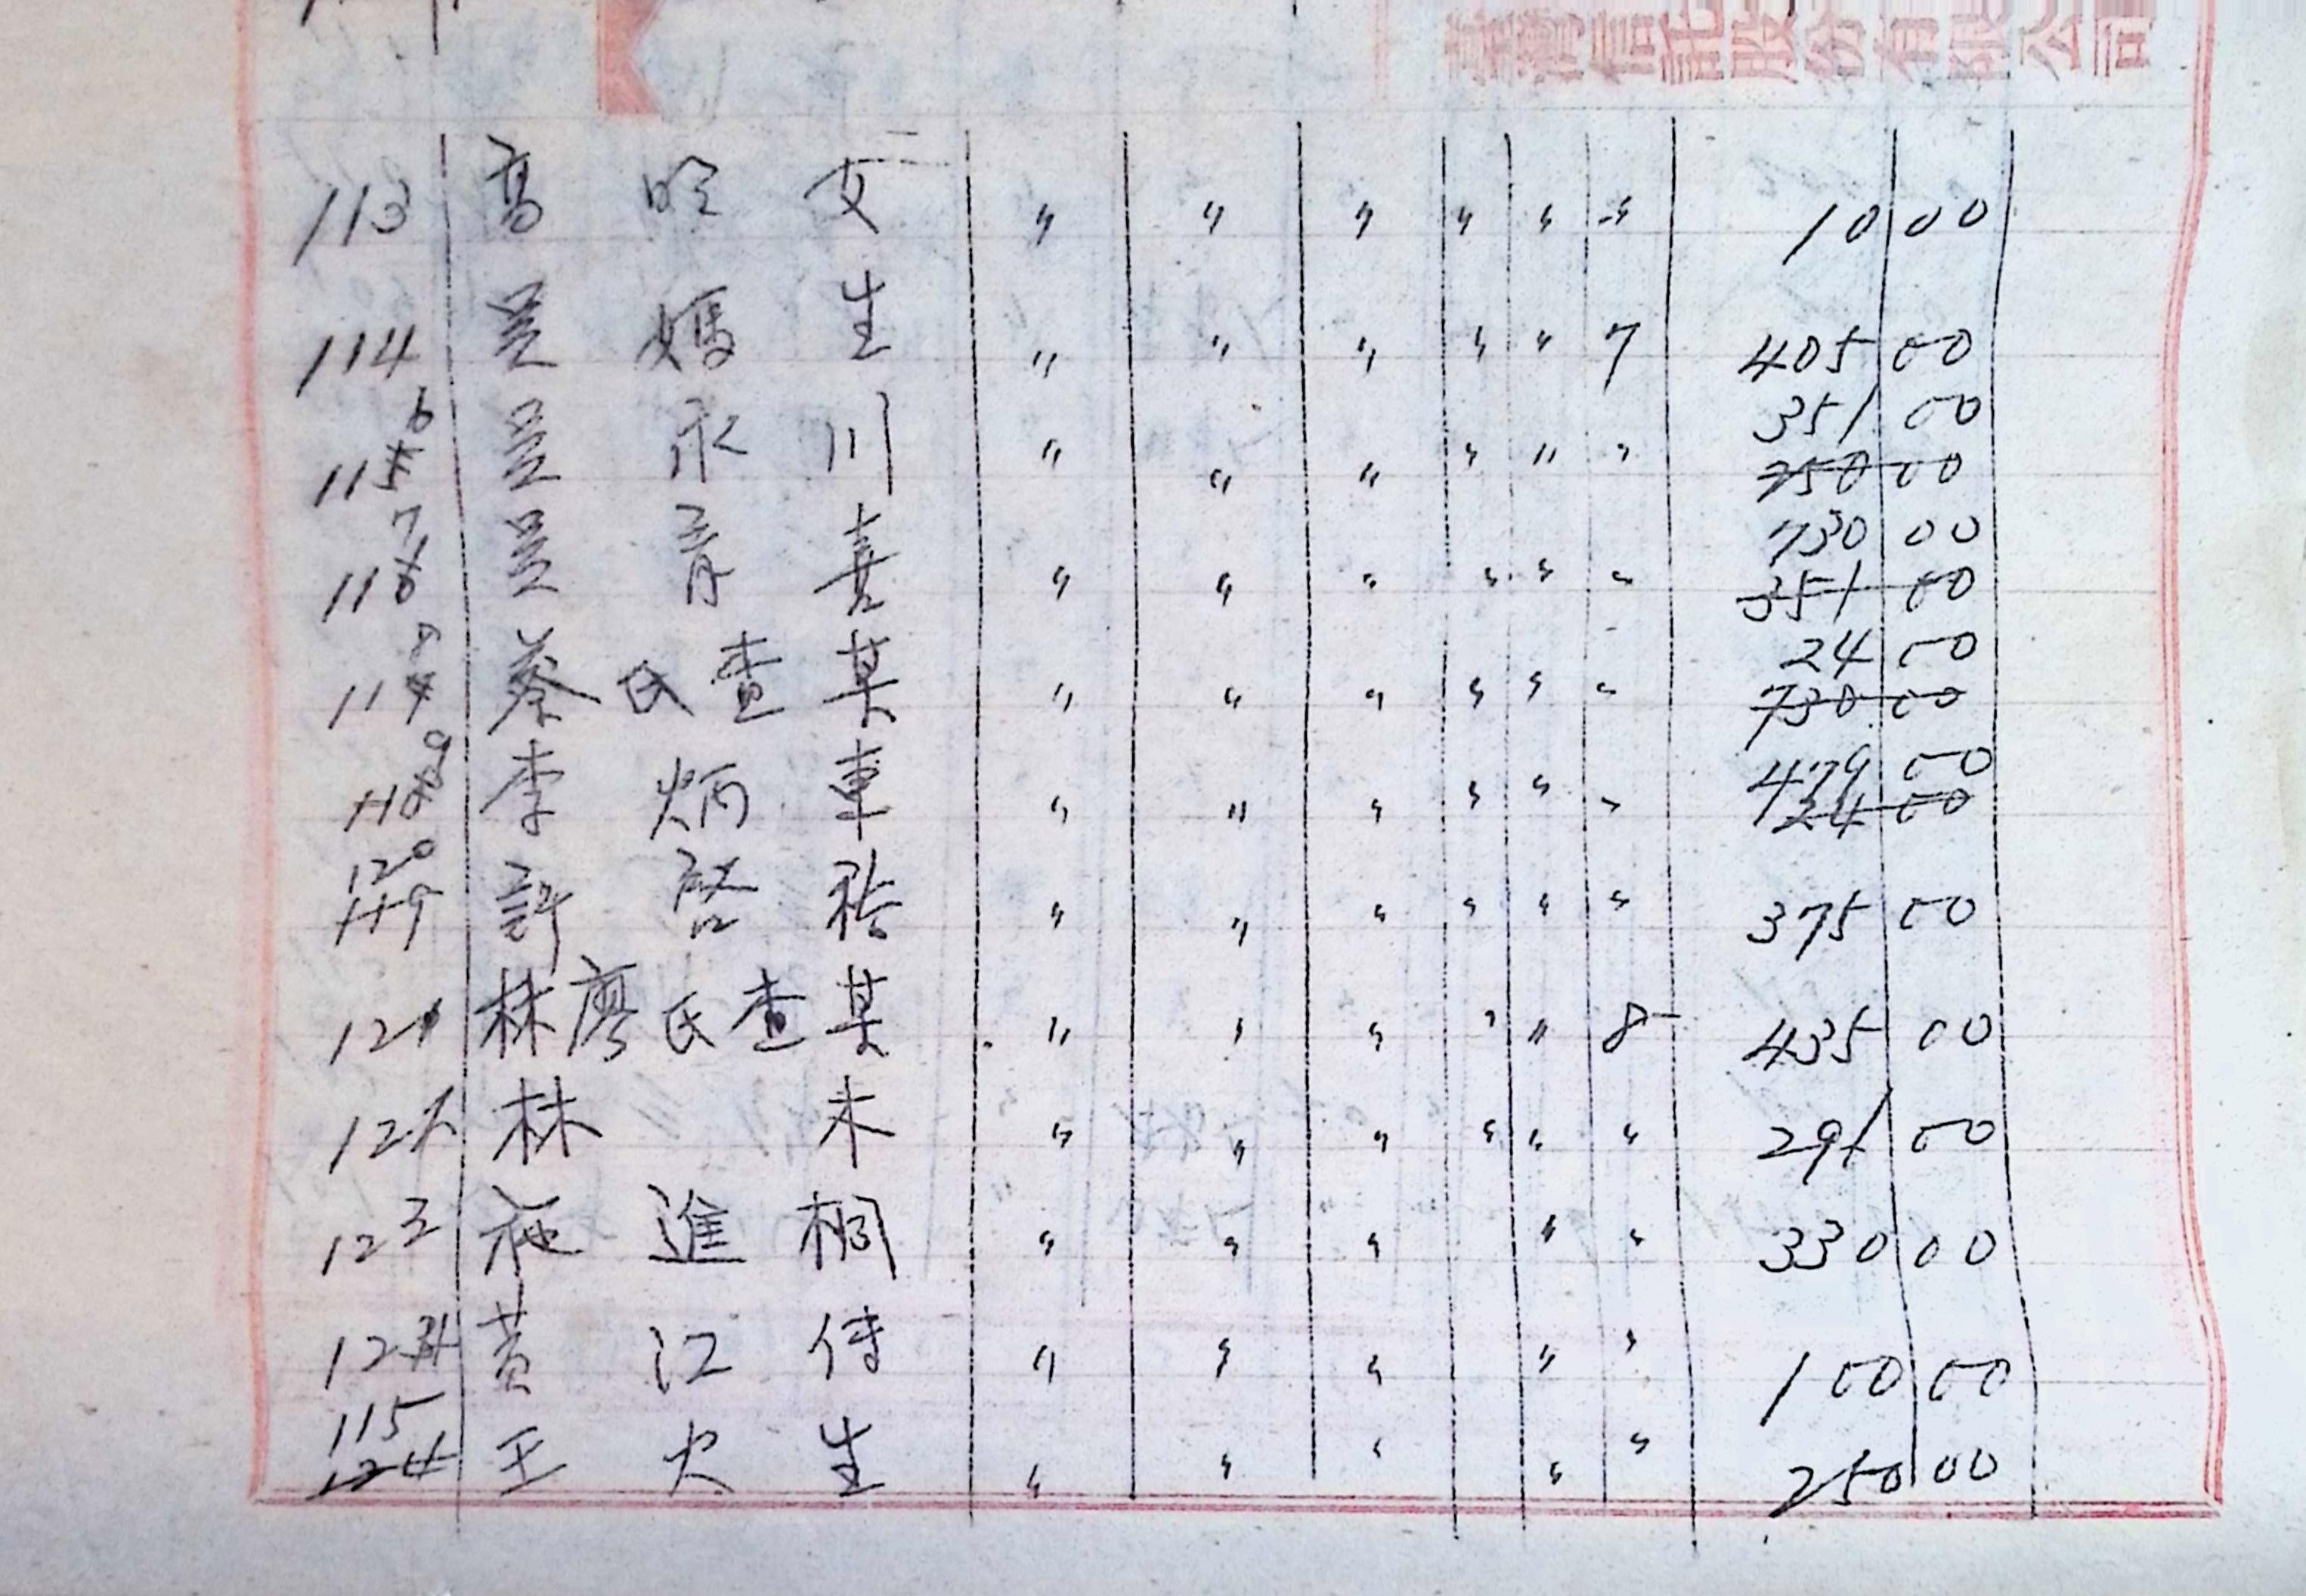 臺灣信託股份有限公司
113 高 女 〃 〃 〃 〃 〃 〃 10 00
114 吳媽生 〃 〃 〃 〃 〃 7 405 00
6 351 00
115 吳永川 〃 〃 〃 〃 〃 〃 250 00
7 730 00
116 吳青喜 〃 〃 〃 〃 〃 〃 351 00
8 24 00
117 蔡氏查某 〃 〃 〃 〃 〃 〃 730 00
9 479 00
118 李炳車 〃 〃 〃 〃 〃 〃 24 00
120
119 許啓 〃 〃 〃 〃 〃 〃 375 00
121 林廖氏查某 〃 〃 〃 〃 〃 8 435 00
122 林未 〃 〃 〃 〃 〃 〃 291 00
123 施進桐 〃 〃 〃 〃 〃 330 00
124 黃江 〃 〃 〃 〃 〃 100 00
115
124 王火生 〃 〃 〃 〃 〃 250 00